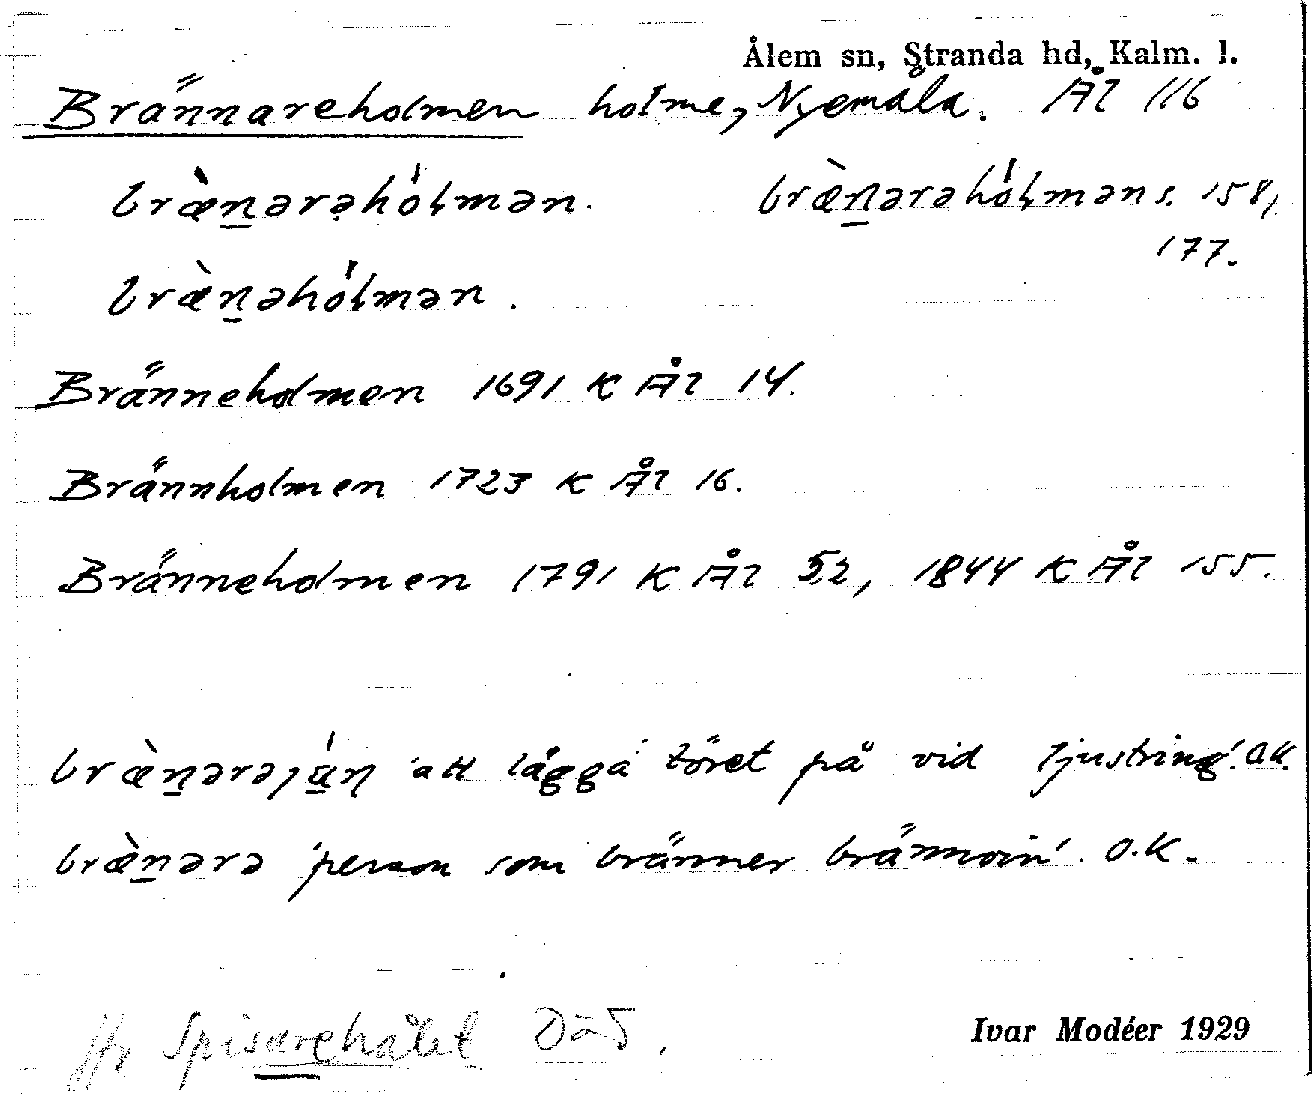 Ålem sn, Stranda hd, Kalm. l.
Brännareholmen holme, Nyemåla. Ål 116
bræ̀n̲ərəhólmən. bræ̀n̲ərəhólməns. 158,
177.
bræ̀n̲əhólmən.
Bränneholmen 1691 K Ål 14.
Brännholmen 1723 K Ål 16.
Bränneholmen 1791 K Ål 52, 1844 K Ål 155.
'att lägga töret på vid ljustring'. O.K.
bræ̀n̲ərə 'person som bränner'. O.K.
jfr Spisarehålet
Ivar Modéer 1929